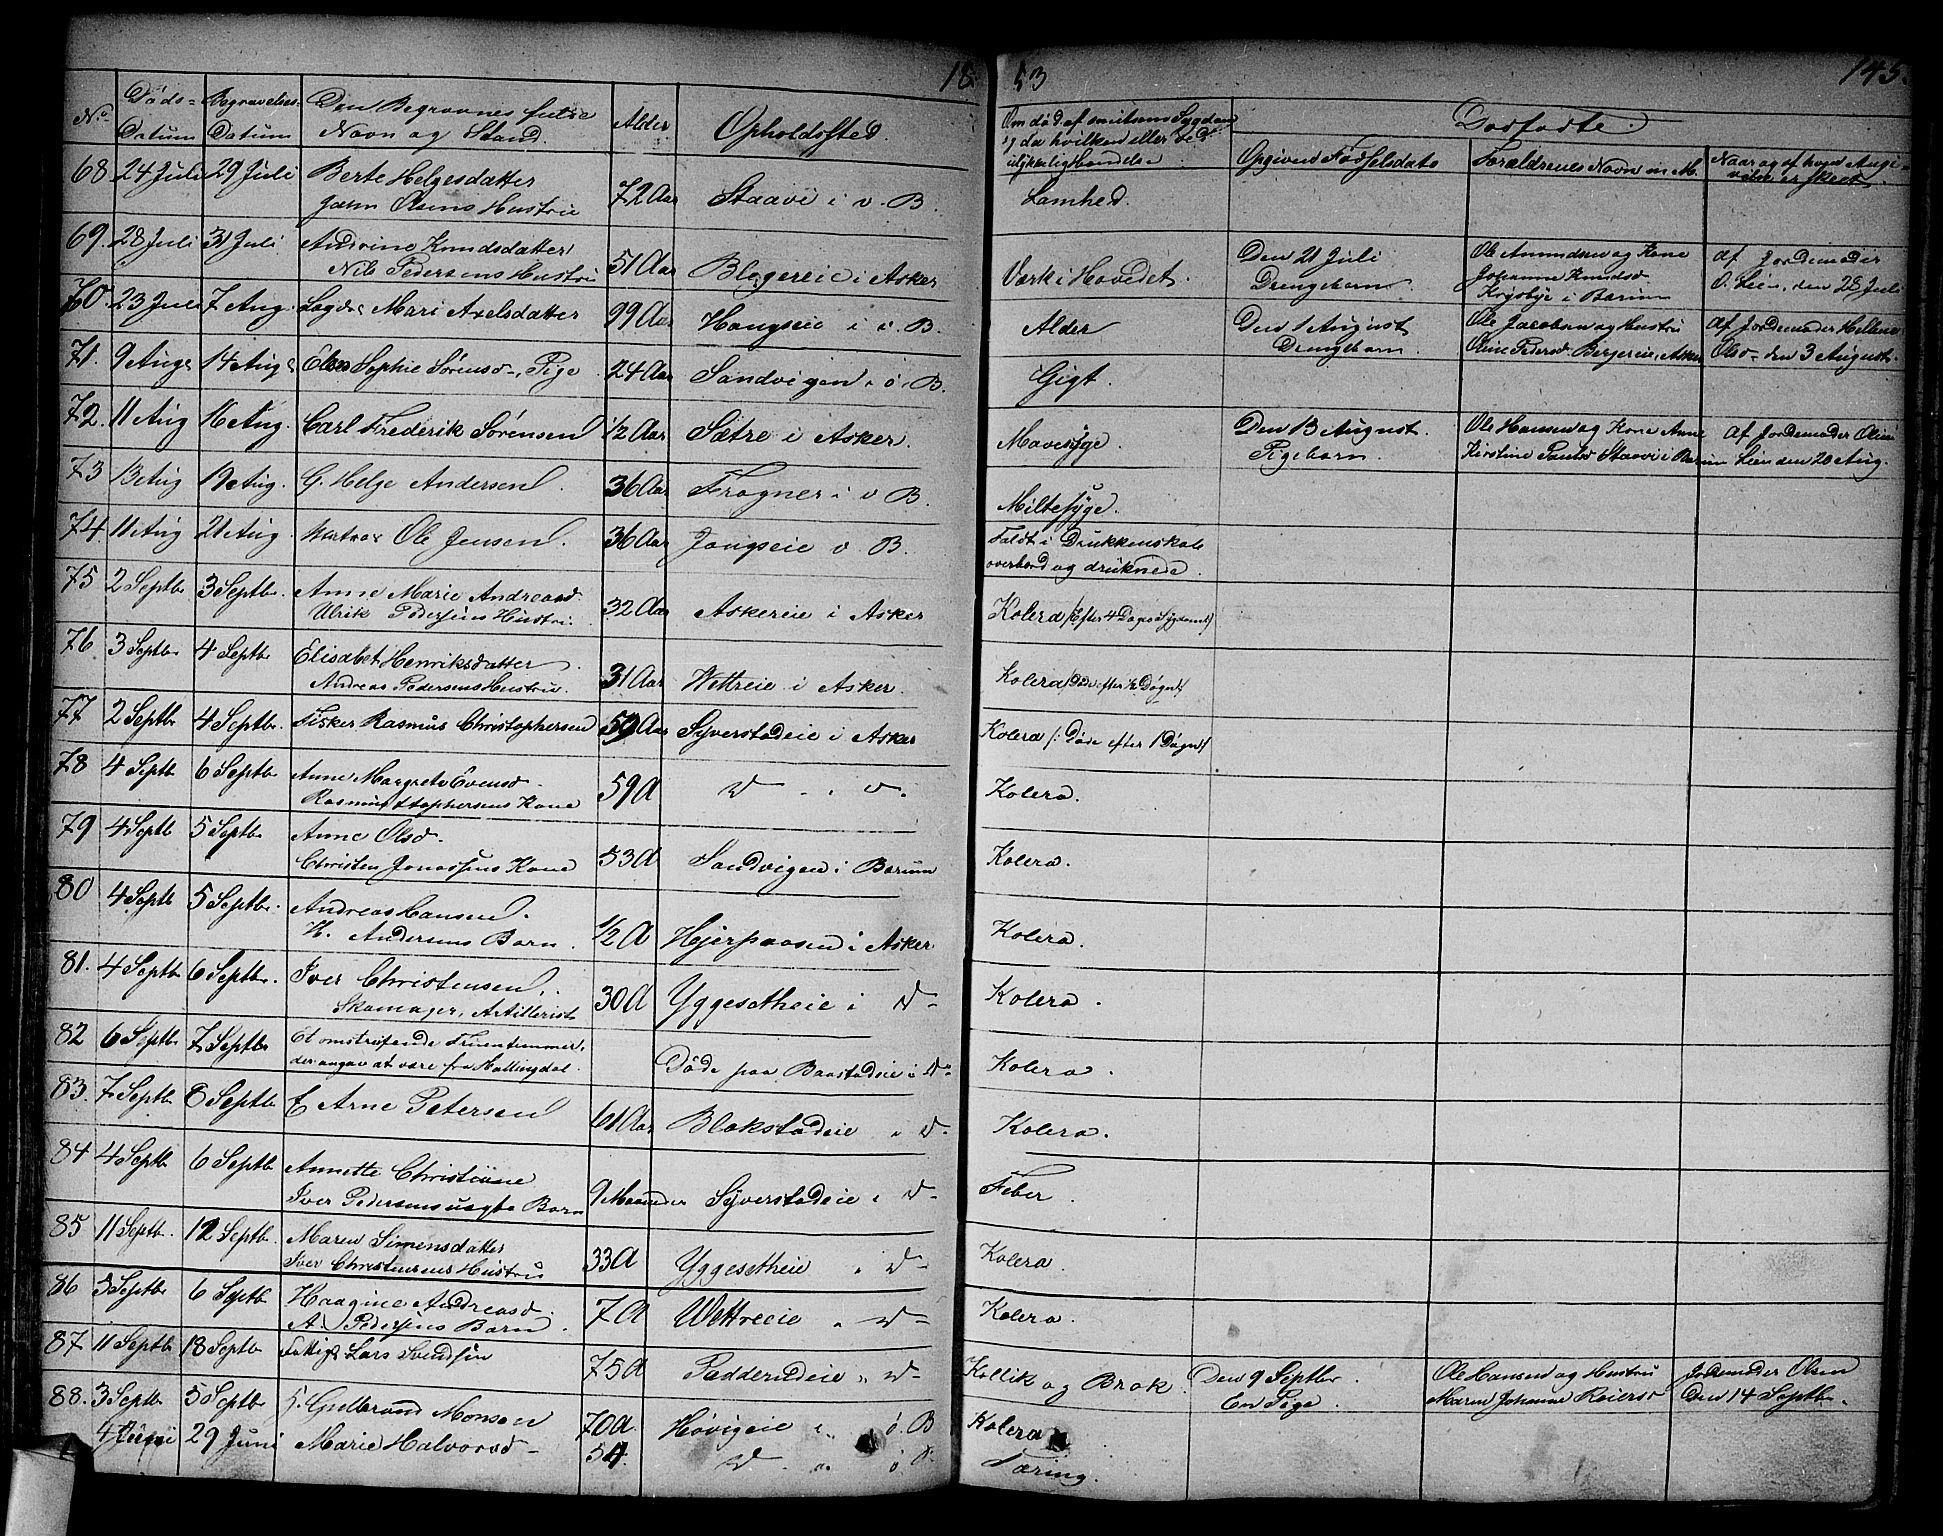 18 53 145.
No Døds-Datum Begravelses-Datum Den Begravnes fulde Navn og Stand. Alder Opholdssted. Om død af smitsom Sygdom og da hvilken eller ved ulykkelig Hændelse Dødfødte.
Opgiven Fødselsdato Forældrenes Navn m. M. Naar og af hvem Angivelse er skeet.
68 24 Juli 29 Juli Berte Helgesdatter 72 Aar Staavi i v. B. Lamhed.
Olsens Hustrue
69. 28 Juli 31 Juli Andrine Knudsdatter 51 Aar Blegereie i Asker Værk i Hovedet. Den 21 Juli Ole Amundsen og Kone af Jordemoder
Nils Pedersens Hustru Drengebarn Johanne Knudsd O. Lien, den 28 Juli
i Bærum
70. 23 Juli 7 Aug. Logd: Mari Axelsdatter 99 Aar Haugseie i v. B. Alder Den 1 August Ole Jacobsen og Hustru af Jordemoder Hellene
Drengebarn. Oline Pedersd. Bergereie, Asker Olsd- den 3 August.
71. 9 Aug 14 Aug Else Sophie Sørensd-, Pige 24 Aar Sandvigen i ø. B. Gigt.
72. 11 Aug 16 Aug. Carl Frederik Sørensen 1/2 Aar Sætre i Asker. Mavesyge. Den 13 August. Ole Hansen og Kone Anne Af Jordemoder Oline
Pigebarn. Kirstine Paulsd Staavi i Bærum Lien den 20 Aug.
73 13 Aug 19 Aug. G. Helge Andersen. 36 Aar Frogner i v B. Miltesyge.
74. 11 Aug 21 Aug. Matros Ole Jensen. 36 Aar Jongseie v. B. Faldt i Drukkenskab
overbord og druknede.
75 2 Septbr 3 Septbr. Anne Marie Andreasd. 32 Aar Askereie i Asker Kolera /: Efter 4 Dages Sygdom :/
Ulrik Pedersens Hustru.
76 3 Septbr 4 Septbr Elisabet Henriksdatter. 31 Aar Wettreie i Asker. Kolera /: Døde efter 1/2 Døgn :/
Andreas Pedersens Hustrue.
77 2 Septbr 4 Septbr. Fisker Rasmus Christophersen 59 Aar Syverstadeie i Asker Kolera /: Døde efter 1 Døgn :/
78 4 Septb 6 Septbr Anne Margrete Evensd- 59 A D - . i D. Kolera.
Rasmus Xtophersens Kone
79 4 Septb 5 Septbr. Anne Olsd. 53 A Sandvigen i Bærum Kolera.
Christen Jonassens Kone
80 4 Septb 5 Septbr. Andreas Hansen. 1/2 A Hjerpaasen i Asker Kolera.
H. Andersens Barn.
81. 4 Septbr 6 Septbr. Iver Christensen. 30 A Yggesetheie i D- Kolera.
Skomager, Artillerist
82 6 Septbr 7 Septbr Et omstrifende Fruentimmer, Døde paa Baastadeie i D- Kolera.
der angav at være fra Hallingdal.
83. 7 Septbr 8 Septbr E Arne Petersen 61 Aar Blakstadeie i D- Kolera.
84 4 Septb 6 Septbr Annette Christiane 9 Maaneder Syverstadeie i D- Feber.
Iver Pedersens uægte Barn
85 11 Septbr. 12 Septbr. Maren Simensdatter 33 A Yggesetheie i D- Kolera.
Iver Christensens Hustru
86 5 Septbr 6 Septbr Haagine Andreasd. 7 A Wettreeie " D- Kolera.
A Pedersens Barn.
87 11 Septbr 18 Septbr Fattig Lars Svendsen 75 A Padderudeie " D- Kollik og Brok. Den 9 Septbr. Ole Hansen og Hustru Jordemoder Olsen
En Pige. Maren Johanne Reiersd Den 14 Septbr.
88. 3 Septb 5 Septbr G. Gulbrand Monsen 70 A Høvigeie i ø. B Kolera
29 Juni Marie Halvorsd- 54. D " ø B. Tæring.